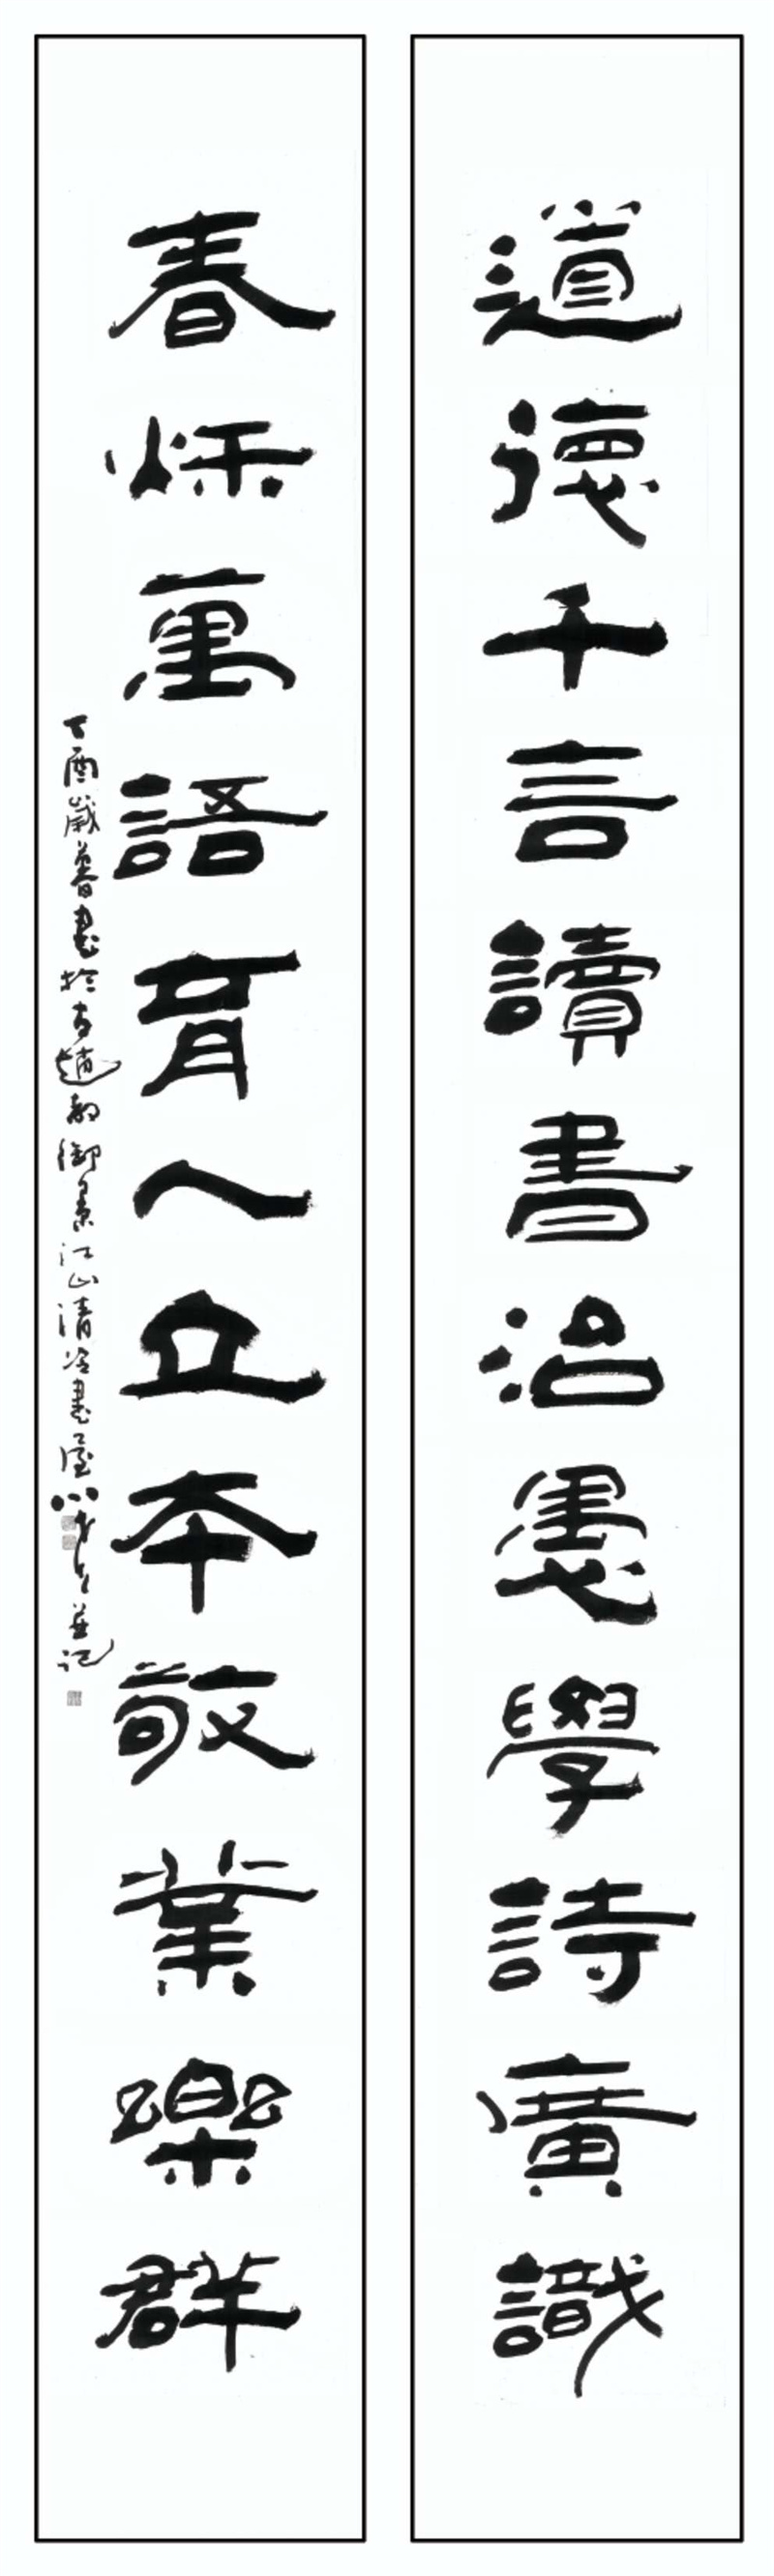 道德千言讀書治愚學詩廣識
春秌萬語育人立本敬業樂群
丁酉歲暮書於古趙都御景江山清泠書屋 並記